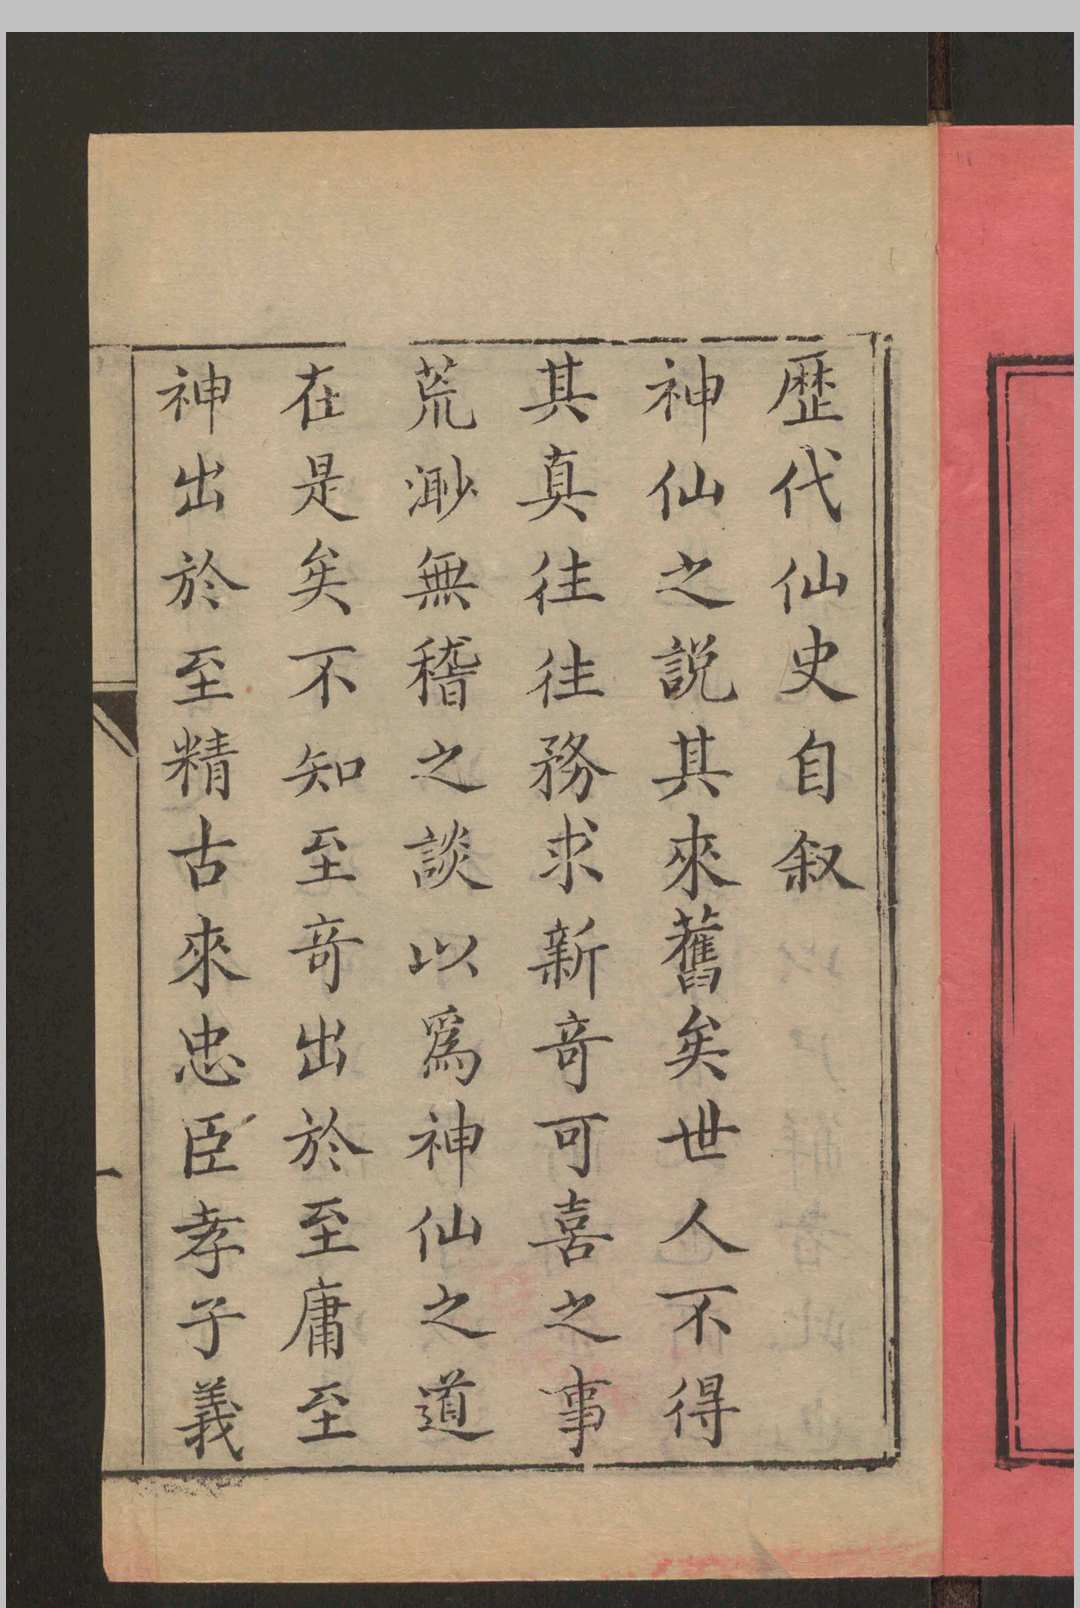 歴代仙史自叙
神仙之説其來舊矣世人不得
其真往往務求新竒可喜之事
荒渺無稽之談以爲神仙之道
在是矣不知至竒出於至庸至
神出於至精古來忠臣孝子義
一